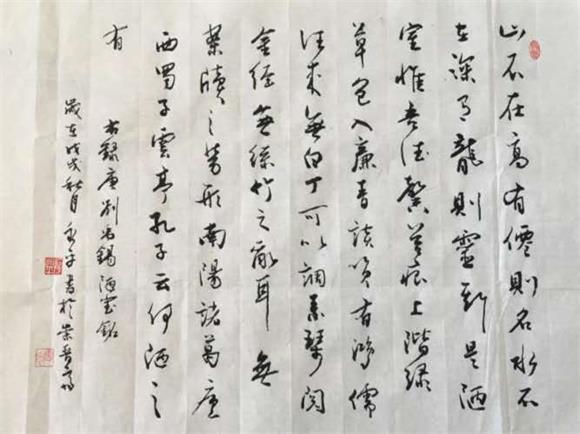 山不在高有僊則名水不
在深有龍則靈斯是陋
室惟吾德馨苔痕上階綠
草色入廉青談笑有鴻儒
往來無白丁可以調素琴閱
金經無絲竹之亂耳無
案牘之勞形南陽諸葛廬
西蜀子雲亭孔子云何陋之
有
右錄唐劉禹錫陋室銘
歲在戊戌秋月子書於崇